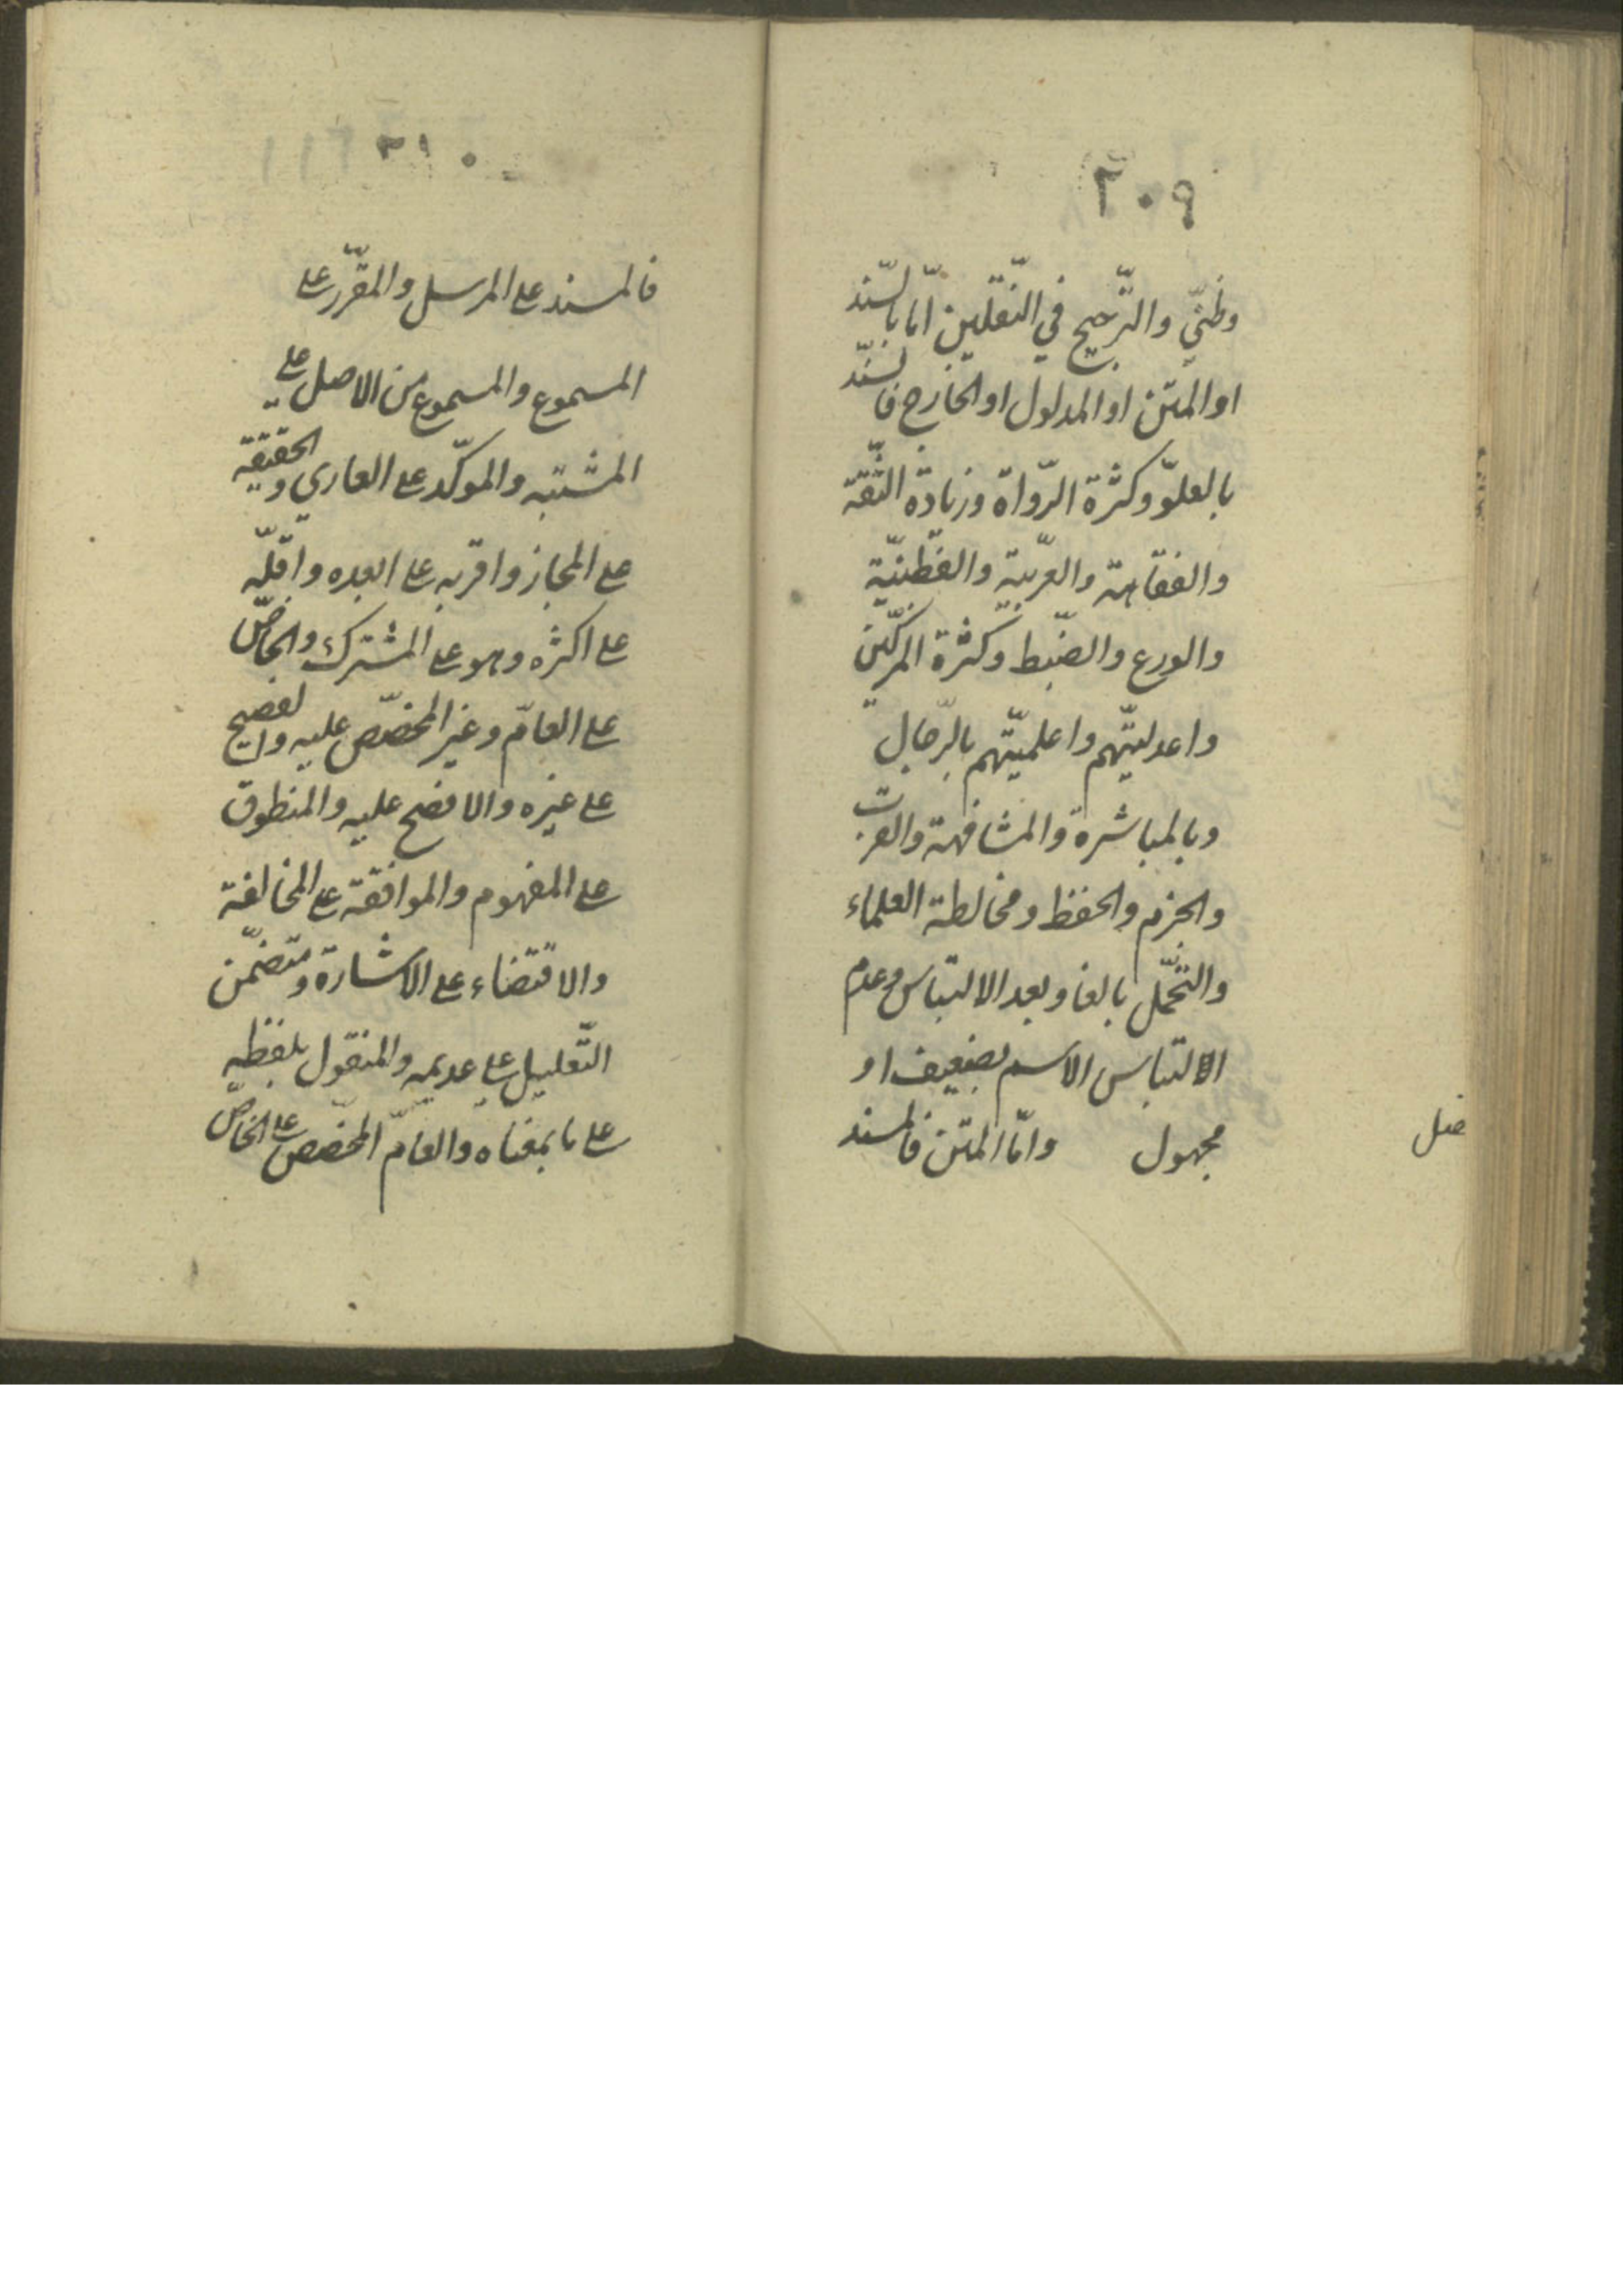 ٢٠٩
وظنّي والتّرجيح في النّقليين امّا بالسّند
او المتن او المدلول او الخارج فالسّند
بالعلوّ وكثرة الرّواة وزيادة الثّقة
والفقاهة والعربيّة والفطنيّة
والورع والضّبط وكثرة المزكّين
واعدليتّهم واعلميّتهم بالرّجال
وبالمباشرة والمشافهة والقرب
والجزم والحفظ ومخالطة العلماء
والتّحمّل بالغا وبعد الالتباس وعدم
الالتباس الاسم بضعيف او
مجهول وامّا المتن فالمسند
فصل
٢١٠
فالمسند على المرسل والمقرّر على
المسموع والمسموع من الاصل على
المشتبه والموكّد على العاري والحقيقة
على المجاز واقربه على ابعده واقلّه
على اكثره وهو على المشترك والخاصّ
على العامّ وغير المخصّص عليه والفصيح
على غيره والافصح عليه والمنطوق
على المفهوم والموافقة على المخالفة
والاقتضاء على الاشارة ومتضمّن
التّعليل على عديمه والمنقول بلفظه
على ما بمعناه والعامّ المخصّص على الخاصّ